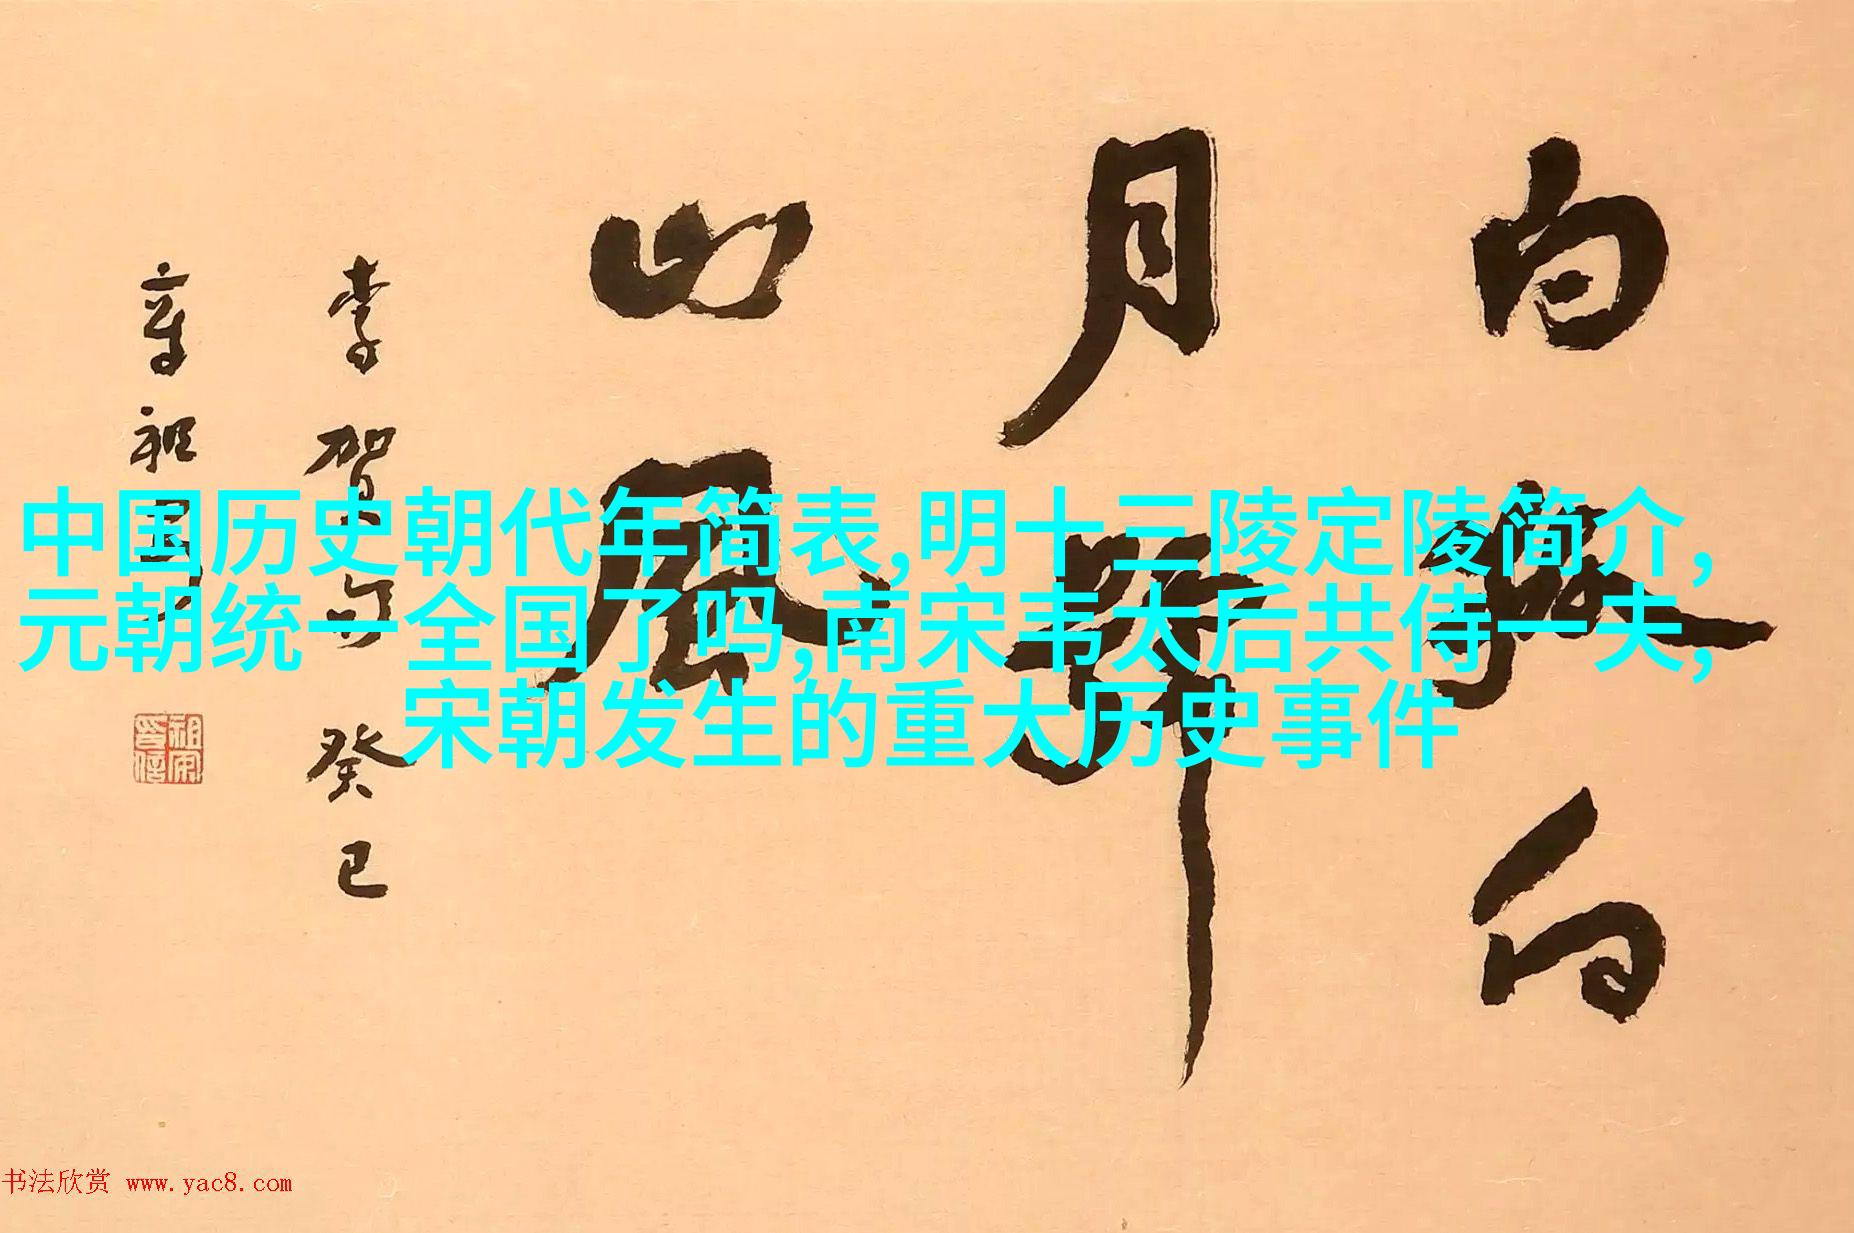 月
山風
李賀句 癸巳
章祖安
中国历史朝代年简表,明十三陵定陵简介,
元朝统一全国了吗,南宋韦太后共侍一夫,
宋朝发生的重大历史事件
书法欣赏 www.yac8.com